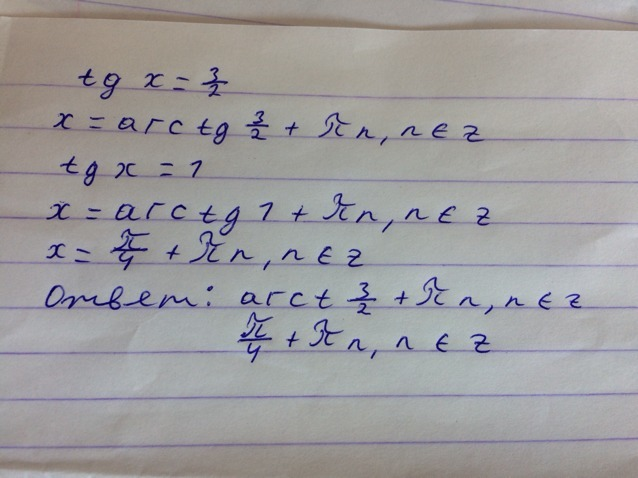 tg x = 3/2
x = arc tg 3/2 + πn, n ∈ z
tg x = 1
x = arc tg 1 + πn, n ∈ z
x = π/4 + πn, n ∈ z
Ответ: arct 3/2 + πn, n ∈ z
π/4 + πn, n ∈ z